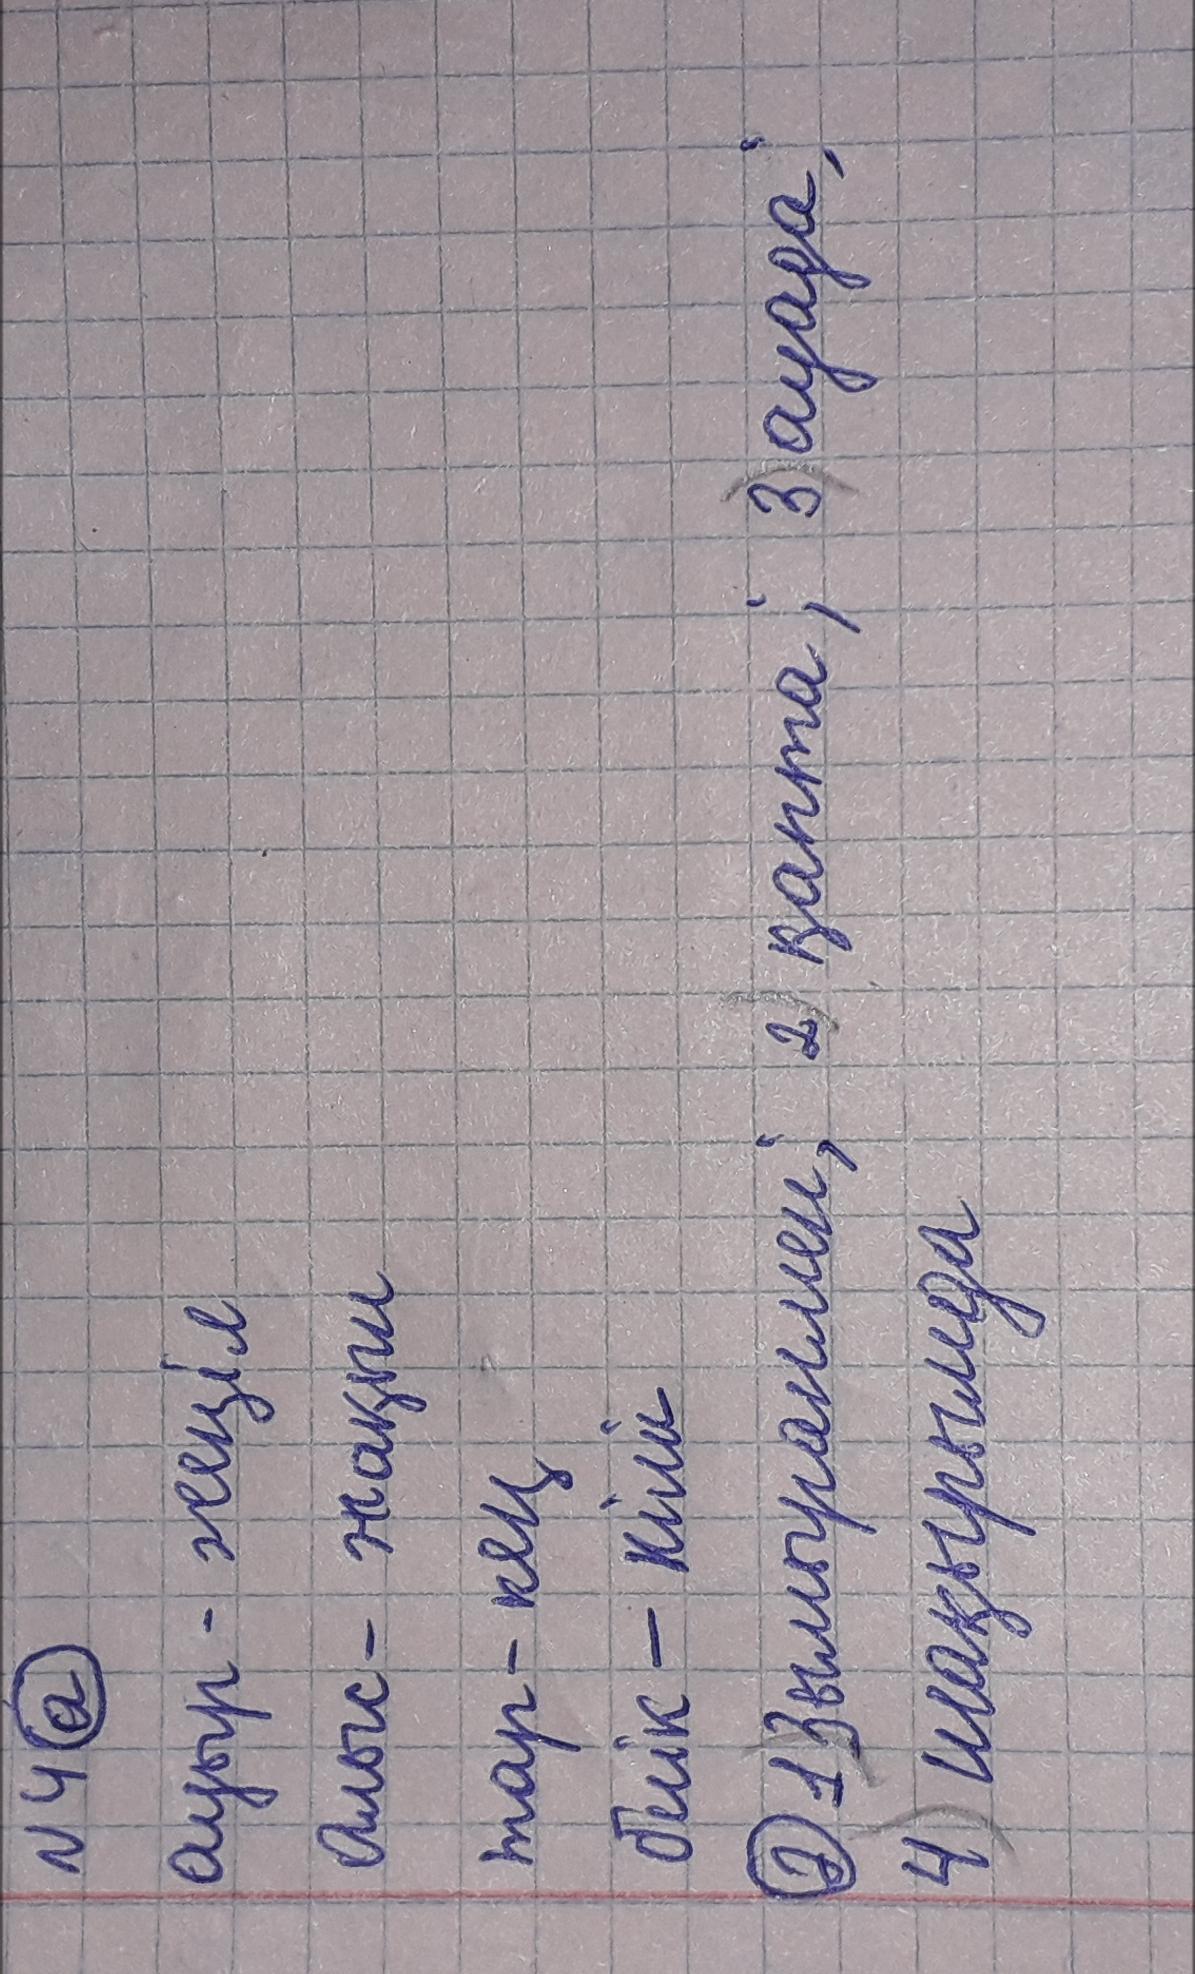 N 4 а
ауыр - жеңіл
алыс - жақын
тар - кең
биік - кіші
ә 1) Зымыранмен; 2) қапта; 3) ауада;
4) шақырымда